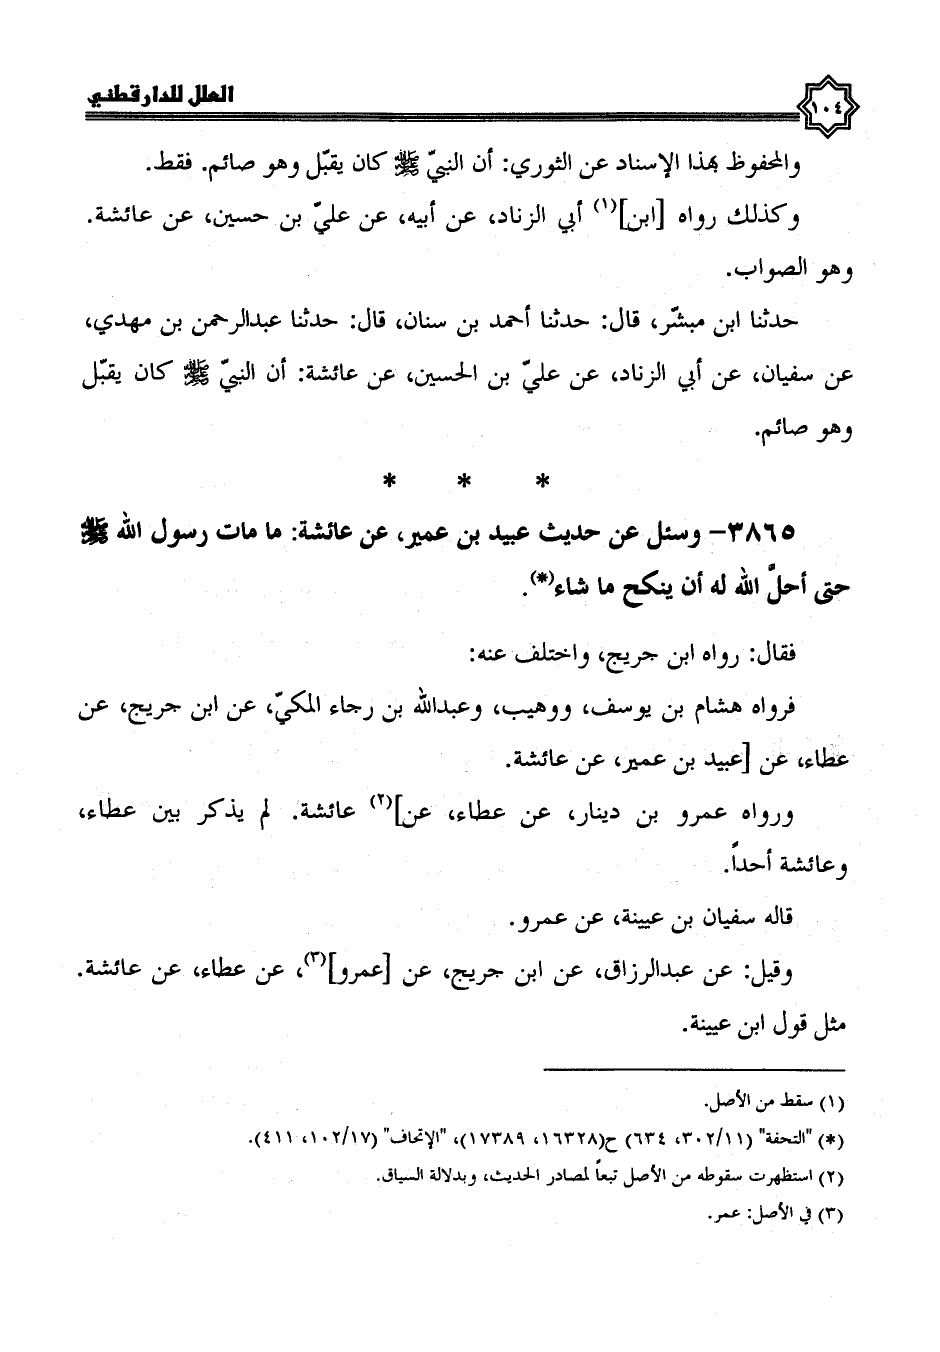 العلل للدارقطني
١٠٤
والمحفوظ بهذا الإسناد عن الثوري: أن النبيّ ﷺ كان يقبّل وهو صائم. فقط.
وكذلك رواه [ابن](١) أبي الزناد، عن أبيه، عن عليّ بن حسين، عن عائشة.
وهو الصواب.
حدثنا ابن مبشّر، قال: حدثنا أحمد بن سنان، قال: حدثنا عبدالرحمن بن مهدي،
عن سفيان، عن أبي الزناد، عن عليّ بن الحسين، عن عائشة: أن النبيّ ﷺ كان يقبّل
وهو صائم.
* * *
٣٨٦٥- وسئل عن حديث عبيد بن عمير، عن عائشة: ما مات رسول الله ﷺ
حتى أحلَّ الله له أن ينكح ما شاء(*).
فقال: رواه ابن جريج، واختلف عنه:
فرواه هشام بن يوسف، ووهيب، وعبدالله بن رجاء المكيّ، عن ابن جريج، عن
عطاء، عن [عبيد بن عمير، عن عائشة.
ورواه عمرو بن دينار، عن عطاء، عن](٢) عائشة. لم يذكر بين عطاء،
وعائشة أحداً.
قاله سفيان بن عيينة، عن عمرو.
وقيل: عن عبدالرزاق، عن ابن جريج، عن [عمرو](٣)، عن عطاء، عن عائشة.
مثل قول ابن عيينة.
(١) سقط من الأصل.
(*) "التحفة" (٣٠٢/١١، ٦٣٤) ح(١٦٣٢٨، ١٧٣٨٩)، "الإتحاف" (١٠٢/١٧، ٤١١).
(٢) استظهرت سقوطه من الأصل تبعاً لمصادر الحديث، وبدلالة السياق.
(٣) في الأصل: عمر.